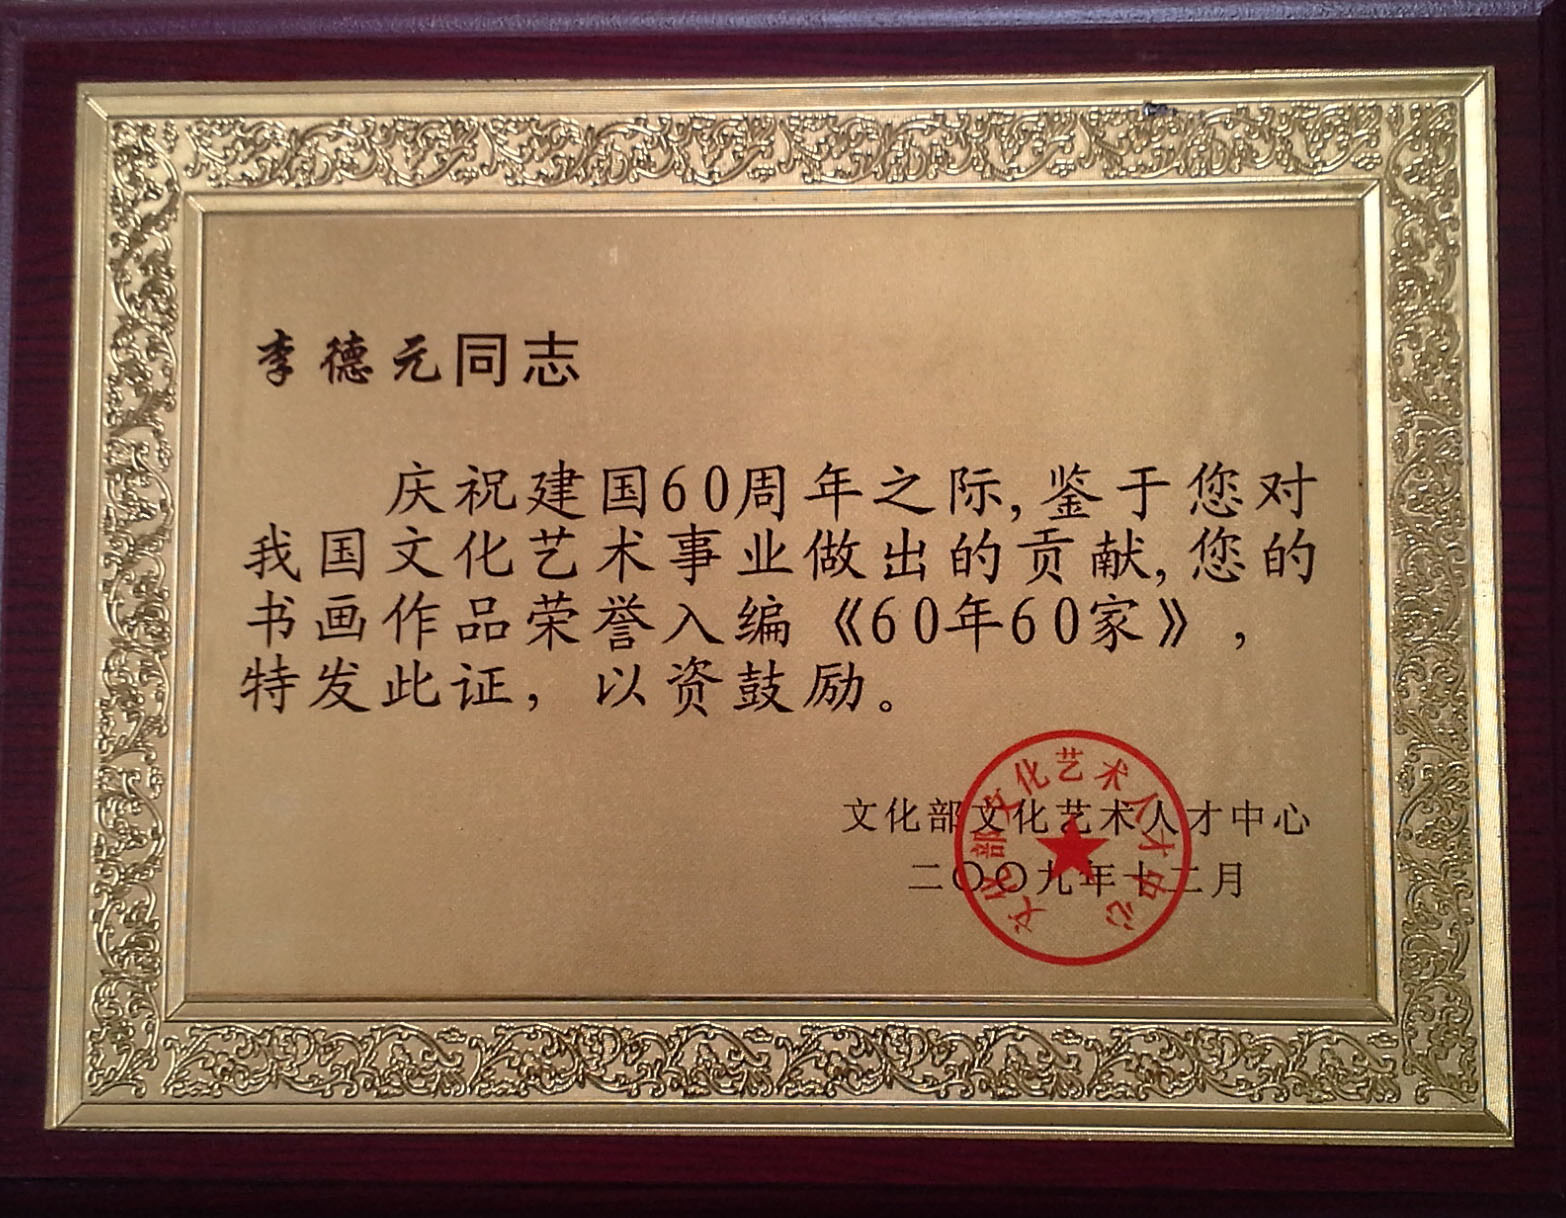 李德元同志
庆祝建国60周年之际,鉴于您对
我国文化艺术事业做出的贡献,您的
书画作品荣誉入编《60年60家》，
特发此证，以资鼓励。
文化部文化艺术人才中心
二〇〇九年十二月
文化部文化艺术人才中心